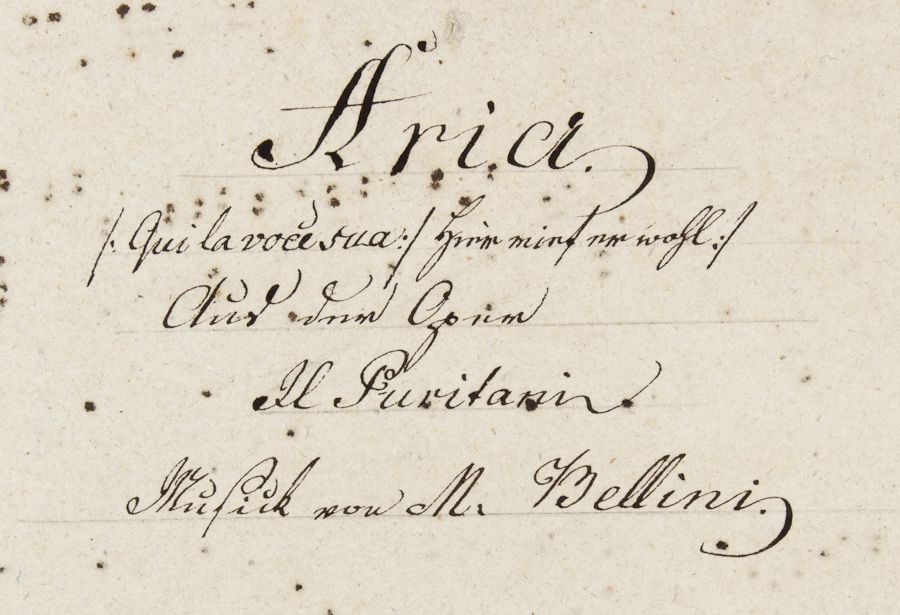 Aria.
/: Qui la voce sua :/ Hier rief er wohl :/
Aus der Oper
Il Puritani
Musick von M. Bellini.